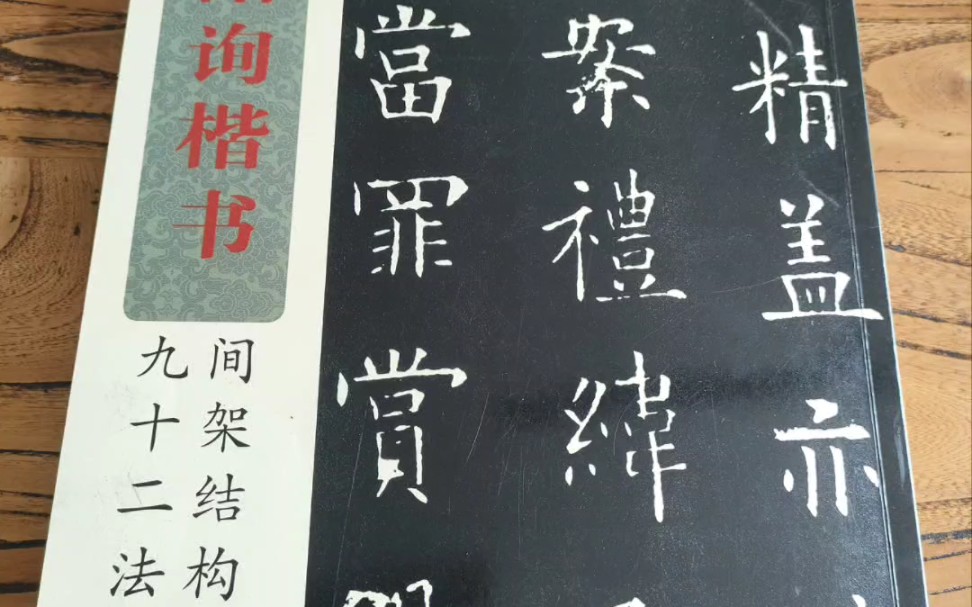 询楷书
间架结构
九十二法
精盖亦
案禮緯
當罪賞